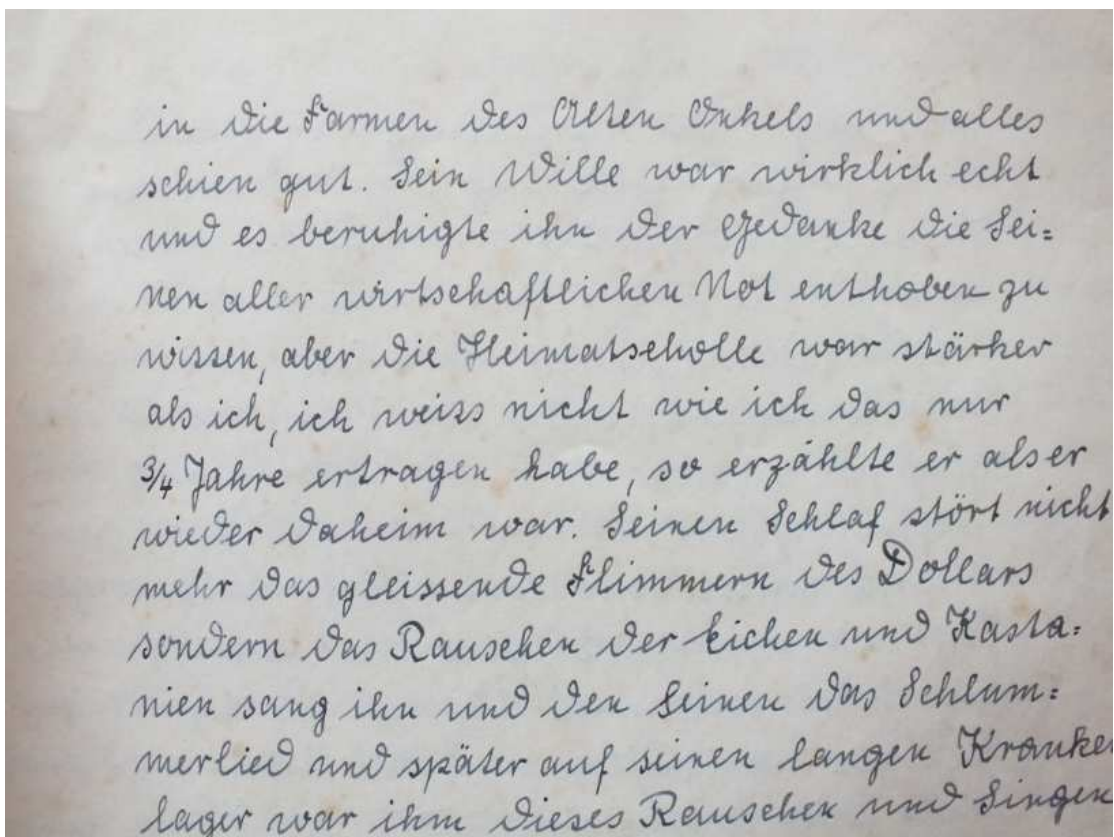 in die Farmen des Alten Onkels und alles
schien gut. Sein Wille war wirklich echt
und es beruhigte ihn der Gedanke die Sei=
nen aller wirtschaftlichen Not enthoben zu
wissen, aber die Heimatscholle war stärker
als ich, ich weiss nicht wie ich das nur
3/4 Jahre ertragen habe, so erzählte er als er
wieder daheim war. Seinen Schlaf stört nicht
mehr das gleissende Flimmern des Dollars
sondern das Rauschen der Eichen und Kasta=
nien sang ihn und den Seinen das Schlum=
merlied und später auf seinen langen Kranken
lager war ihm dieses Rauschen und Singen